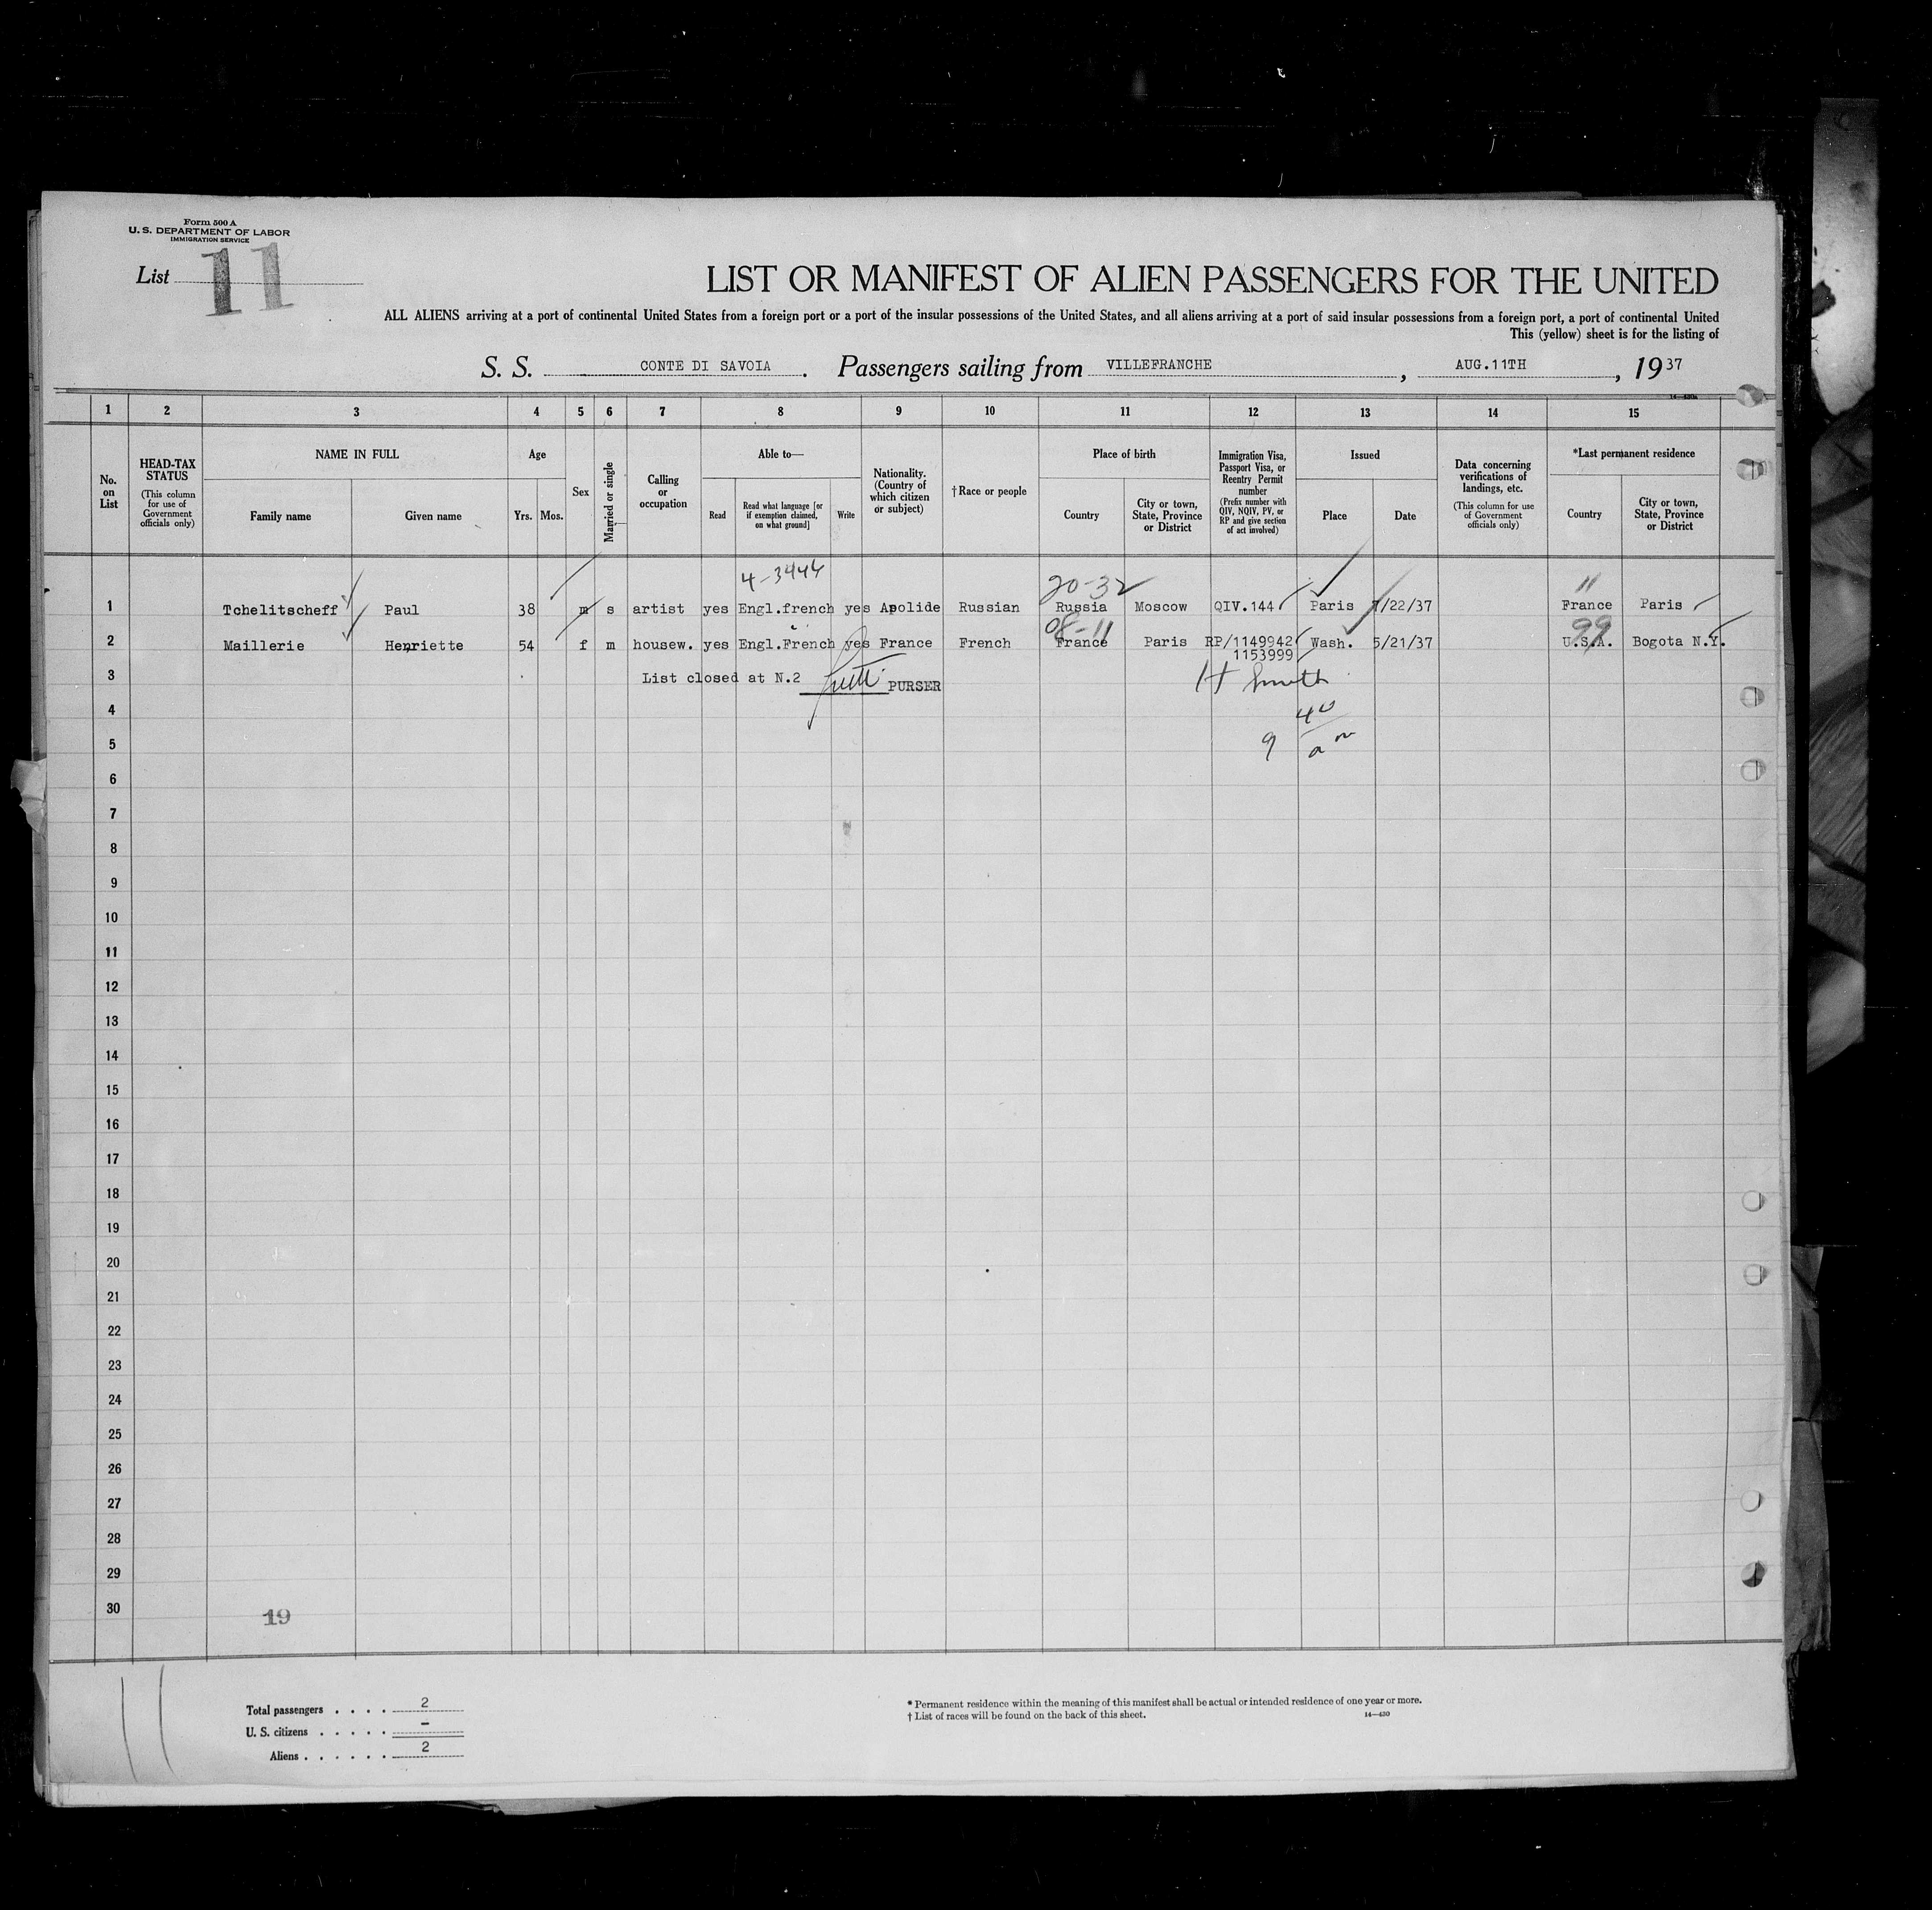 Form 500 A
U. S. DEPARTMENT OF LABOR
IMMIGRATION SERVICE
List 11
LIST OR MANIFEST OF ALIEN PASSENGERS FOR THE UNITED
ALL ALIENS arriving at a port of continental United States from a foreign port or a port of the insular possessions of the United States, and all aliens arriving at a port of said insular possessions from a foreign port, a port of continental United
This (yellow) sheet is for the listing of
S. S. CONTE DI SAVOIA. Passengers sailing from VILLEFRANCHE, AUG.11TH, 1937
1 2 3 4 5 6 7 8 9 10 11 12 13 14 15
No. on List
HEAD-TAX STATUS (This column for use of Government officials only)
NAME IN FULL
Family name
Given name
Age
Yrs. Mos.
Sex
Married or single
Calling or occupation
Able to—
Read
Read what language [or if exemption claimed, on what ground]
Write
Nationality. (Country of which citizen or subject)
†Race or people
Place of birth
Country
City or town, State, Province or District
Immigration Visa, Passport Visa, or Reentry Permit number (Prefix number with QIV, NQIV, PV, or RP and give section of act involved)
Issued
Place
Date
Data concerning verifications of landings, etc. (This column for use of Government officials only)
*Last permanent residence
Country
City or town, State, Province or District
4-3444 20-32 11
1 Tchelitscheff Paul 38 m s artist yes Engl.french yes Apolide Russian Russia Moscow QIV.144 Paris 7/22/37 France Paris
08-11 99
2 Maillerie Henriette 54 f m housew. yes Engl.French yes France French France Paris RP/1149942 Wash. 5/21/37 U.S.A. Bogota N.Y.
1153999
3 List closed at N.2 PURSER H Smith
4 40
5 9
6
7
8
9
10
11
12
13
14
15
16
17
18
19
20
21
22
23
24
25
26
27
28
29
30
19
11
Total passengers . . . . 2
U. S. citizens . . . . . –
Aliens . . . . . . 2
* Permanent residence within the meaning of this manifest shall be actual or intended residence of one year or more.
† List of races will be found on the back of this sheet. 14—430